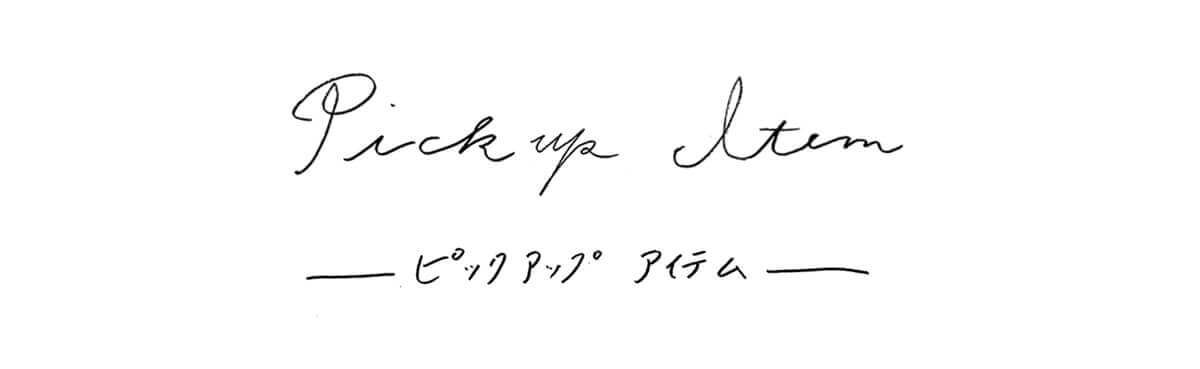 Pick up Item
ピックアップ アイテム